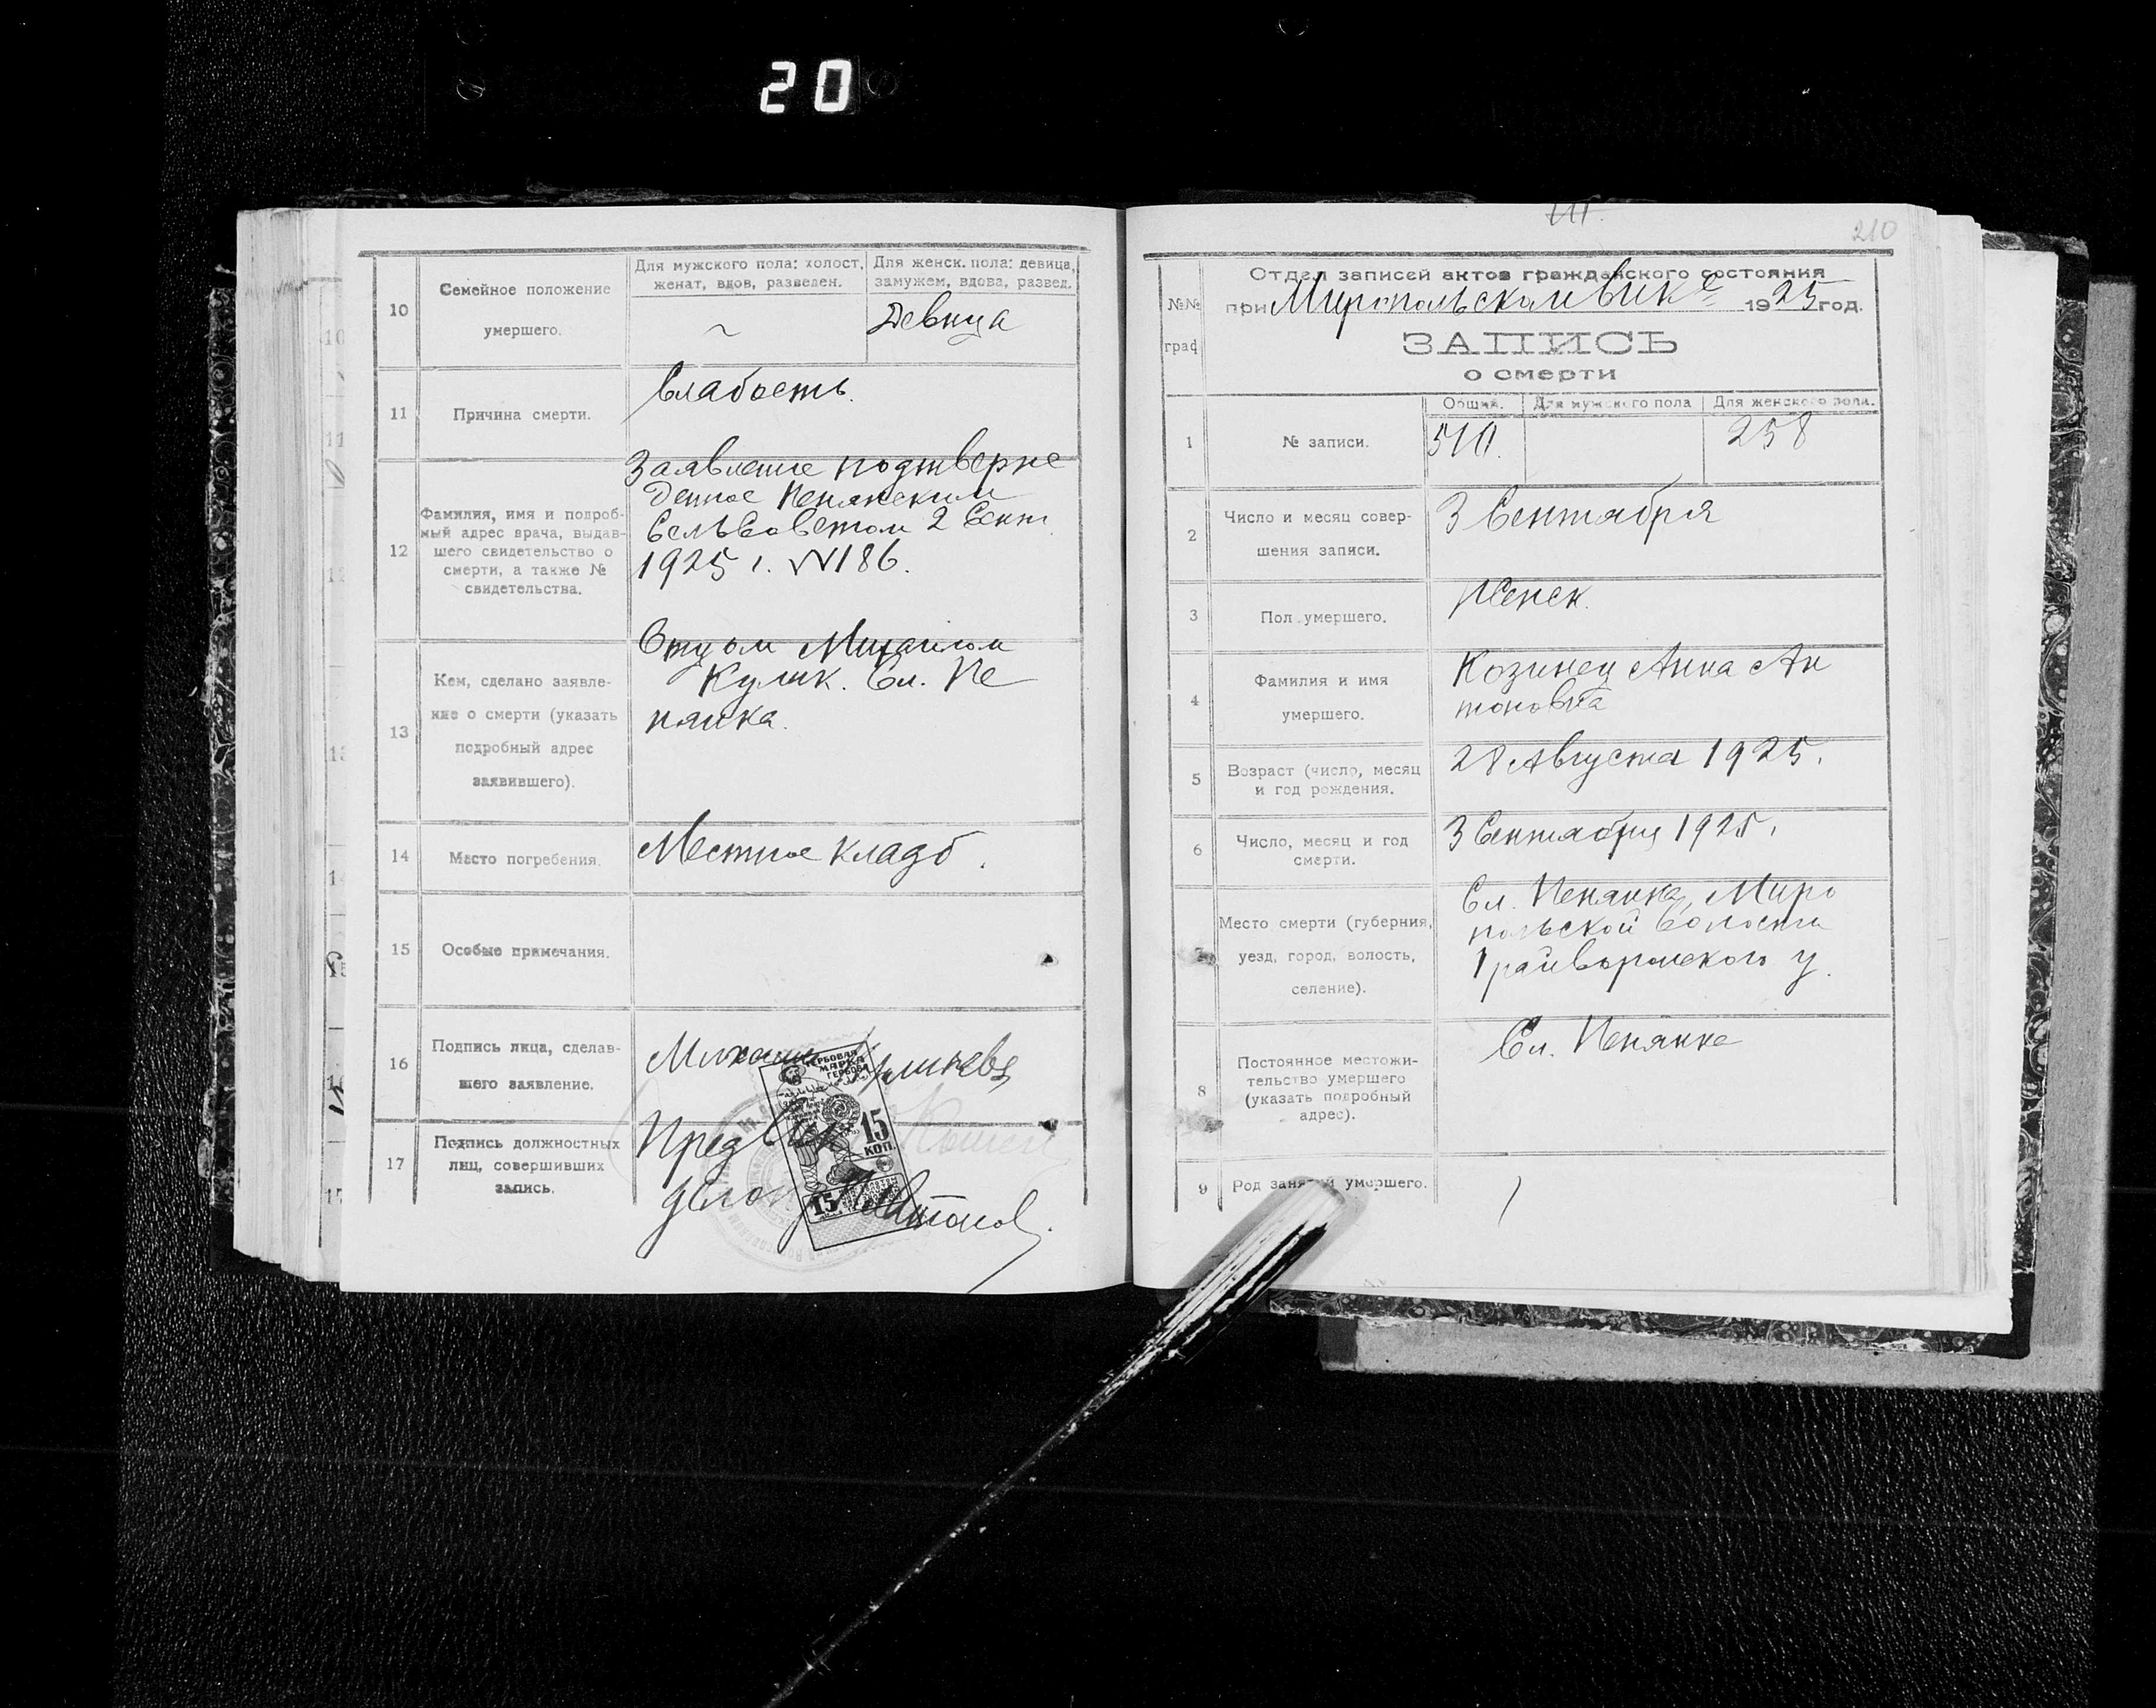 20
10
Семейное положение
умершего.
Для мужского пола: холост,
женат, вдов, разведен.
Для женск. пола: девица,
замужем, вдова, развед.
~
Девица
11
Причина смерти.
Слабость.
12
Фамилия, имя и подроб-
ный адрес врача, выдав-
шего свидетельство о
смерти, а также №
свидетельства.
Заявление подтверже
денное Пенянским
Сельсоветом 2 Сент
1925 г. №186.
13
Кем, сделано заявле-
ние о смерти (указать
подробный адрес
заявившего).
Отцом Михаилом
Кулик. Сл. Пе
нянка.
14
Место погребения.
Местное кладб.
15
Особые примечания.
16
Подпись лица, сделав-
шего заявление.
Михаил
ГЕРБОВАЯ
МАРКА
15
КОП.
15
17
Подпись должностных
лиц, совершивших
запись.
Пред
210
№№
граф
Отдел записей актов гражданского состояния
при Миропольском Вик е 1925 год.
ЗАПИСЬ
о смерти
1
№ записи.
Общий.
Для мужского пола
Для женского пола.
511.
258
2
Число и месяц совер-
шения записи.
3 Сентября
3
Пол умершего.
Женск.
4
Фамилия и имя
умершего.
Козинец Анна Ан
тоновна
5
Возраст (число, месяц
и год рождения.
28 Августа 1925.
6
Число, месяц и год
смерти.
3 Сентября 1925.
7
Место смерти (губерния,
уезд, город, волость,
селение).
Сл. Пенянка, Миро
польской волости
Грайворонского у.
8
Постоянное местожи-
тельство умершего
(указать подробный
адрес).
Сл. Пенянка
9
Род занятий умершего.